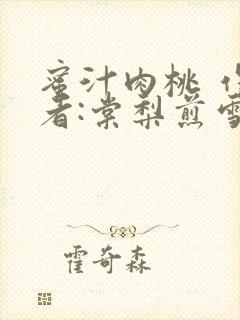 蜜汁肉桃 作
者:棠梨煎雪
霍奇森